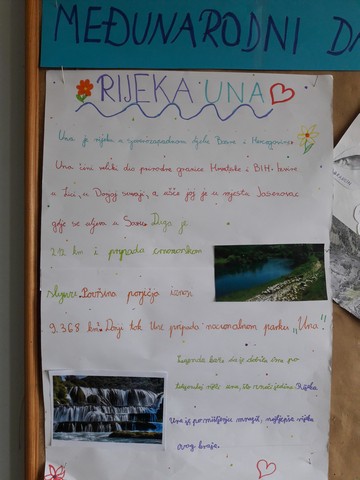 MEĐUNARODNI DA
RIJEKA UNA
Una je rijeka u sjeverozapadnom djelu Bosne i Hercegovine.
Una čini veliki dio prirodne granice Hrvatske i BIH. Izvire
u Lici, u Donjoj Suvaji, a ušće joj je u mjestu Jasenovac
gdje se uljeva u Savu. Duga je
212 km i pripada crnomorskom
slijevu. Površina porječja iznosi
9.368 km². Donji tok Une pripada nacionalnom parku "Una".
Legenda kaže da je dobila ime po
latinskoj riječi una, što znači jedina. Rijeka
Una je po mišljenju mnogih, najljepša rijeka
ovog kraja.